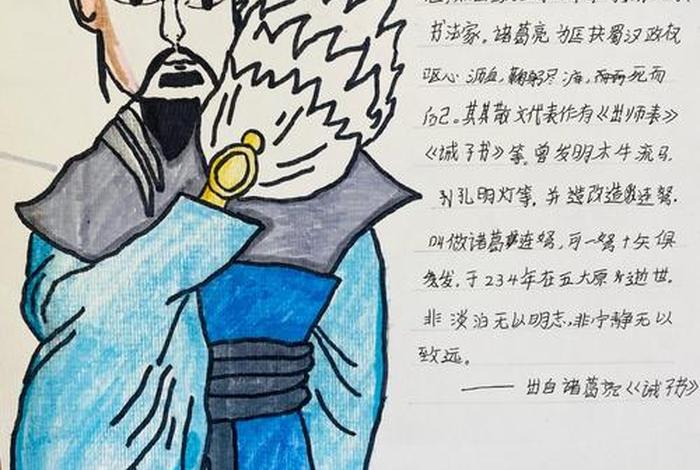 书法家。诸葛亮为匡扶蜀汉政权
呕心沥血,鞠躬尽瘁,死而
后已。其散文代表作有《出师表》
《诫子书》等。曾发明木牛流马、
孔明灯等,并造改造连弩,
叫做诸葛连弩,可一弩十矢俱
发。于234年在五丈原逝世。
非淡泊无以明志,非宁静无以
致远。
—— 出自诸葛亮《诫子书》